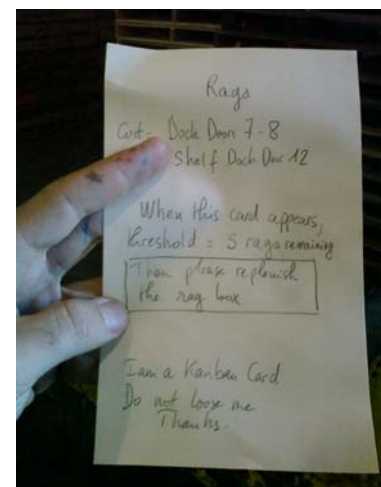 Rags
Dock Door 7-8
Shelf Dock Door 12
When this card appears,
threshold = 5 rags remaining
Then please replenish
the rag box
I am a Kanban Card
Do not loose me
Thanks